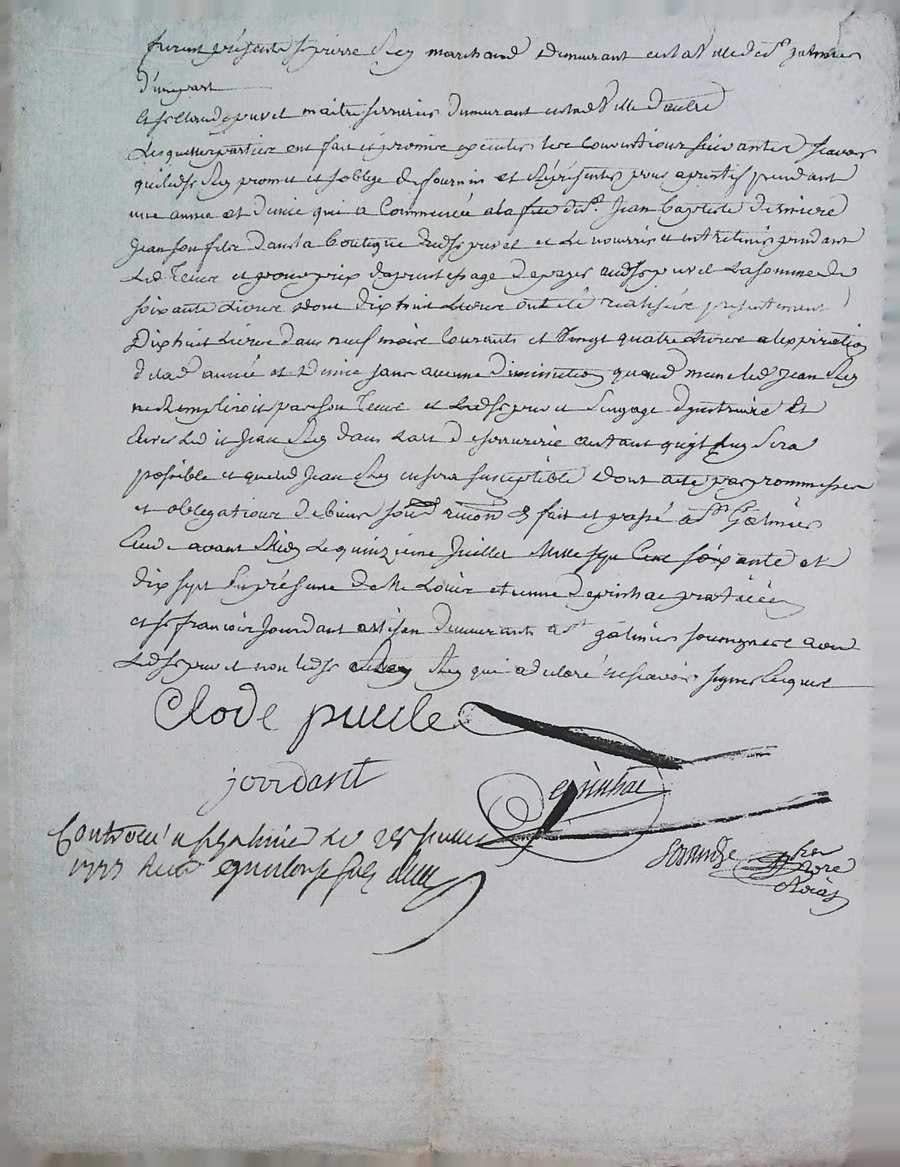 furent présents sr pierre Rey marchand demeurant en la ville de st galmier
d'une part
et sr Claude puvel maitre serrurier demeurant en lad ville d'autre
Lesquelles parties ont fait et promis executer les conventions suivantes scavoir
que led sr Rey promet et soblige de fournir et représenter pour aprentif pendant
une année et demie qui a commencée a la fete de st Jean Baptiste derniere
Jean son fils dans la boutique dud sr puvel et le nourrir et entretenir pendant
led tems et pour prix daprentissage de payer aud sr puvel la somme de
soixante livres dont dix huit livres ont été réalisées présentement
dix huit livres dans neuf mois courants et vingt quatre livres a lexpiration
de lad année et demie sans aucune diminution quand meme led Jean Rey
ne rempliroit pas son tems et led sr puvel sengage dinstruire et
led it Jean Rey dans lart de serrurerie autant quil luy sera
possible et que led Jean Rey en sera susceptible dont acte par promesses
et obligations de biens soumō renōn & fait et passé a st Galmier
Etude avant midy le quinzieme Juillet mille sept cent soixante et
dix sept En présence de Me Louis etienne depinhac praticien
et sr francois Jourdant artisan demeurants a st galmier soussignes avec
led sr puvel non led sr Rey qui a declaré ne scavoir signer Enquis
Clode puvele
jourdant
epinhac
Controlé a st galmier le juillet
1777 Recu